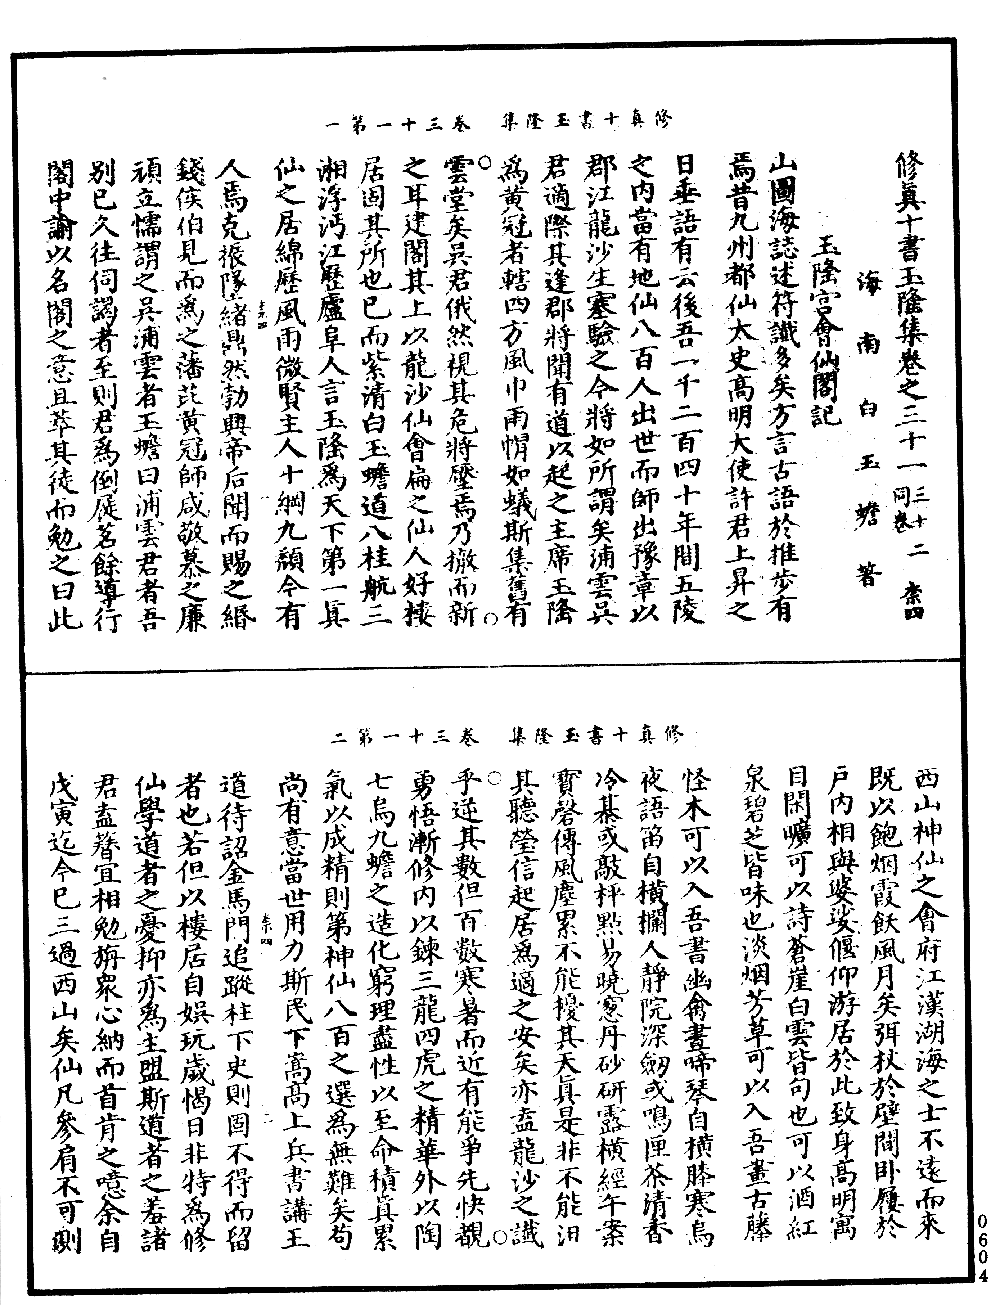 修真十書玉隆集　卷三十一第一
修真十書玉隆集卷之三十一　三十二同卷　柰四
海南白玉蟾著
玉隆宮會仙閣記
山圖海誌述符讖多矣方言古語於推步有
焉昔九州都仙太史高明大使許君上昇之
日垂語有云後吾一千二百四十年間五陵
之内當有地仙八百人出世而師出豫章以
郡江龍沙生塞驗之今將如所謂矣浦雲吳
君適際其逢郡將聞有道以起之主席玉隆
爲黃冠者轄四方風巾雨帽如蟻斯集舊有
雲堂矣吳君俄然視其危將壓焉乃撤而新
之耳建閣其上以龍沙仙會扁之仙人好樓
居固其所也已而紫清白玉蟾道八桂航三
湘浮沔江歷廬阜人言玉隆爲天下第一真
仙之居綿歷風雨微賢主人十綱九纇今有
柰四
人焉克振隊緒鼎然勃興帝后聞而賜之緡
錢侯伯見而爲之藩芘黃冠師咸敬慕之廉
頑立懦謂之吳浦雲者玉蟾曰浦雲君者吾
別已久往伺謁者至則君爲倒屣茗餘導行
閣中諭以名閣之意且萃其徒而勉之曰此
修真十書玉隆集　卷三十一第二
西山神仙之會府江漢湖海之士不遠而來
既以飽烟霞飲風月矣弭杖於壁間卧屨於
户内相與婆娑偃仰游居於此致身高明寓
目閑曠可以詩蒼崖白雲皆句也可以酒紅
泉碧芝皆味也淡烟芳草可以入吾畫古藤
怪木可以入吾書幽禽晝啼琴自橫膝寒烏
夜語笛自橫欄人靜院深劒或鳴匣茶清香
冷棊或敲枰點易曉窻丹砂研露橫經午案
寶磬傳風塵累不能擾其天真是非不能汨
其聽瑩信起居爲適之安矣亦盍龍沙之讖
乎逆其數但百數寒暑而近有能爭先快覩
勇悟漸修内以鍊三龍四虎之精華外以陶
七烏九蟾之造化窮理盡性以至命積真累
氣以成精則第神仙八百之選爲無難矣苟
尚有意當世用力斯民下嵩高上兵書講王
柰四
道待詔金馬門追蹤柱下史則固不得而留
者也若但以樓居自娛玩歲愒日非特爲修
仙學道者之憂抑亦爲主盟斯道者之羞諸
君盍簪宜相勉旃衆心納而首肯之噫余自
戊寅迄今已三過西山矣仙凡參肩不可測
0604